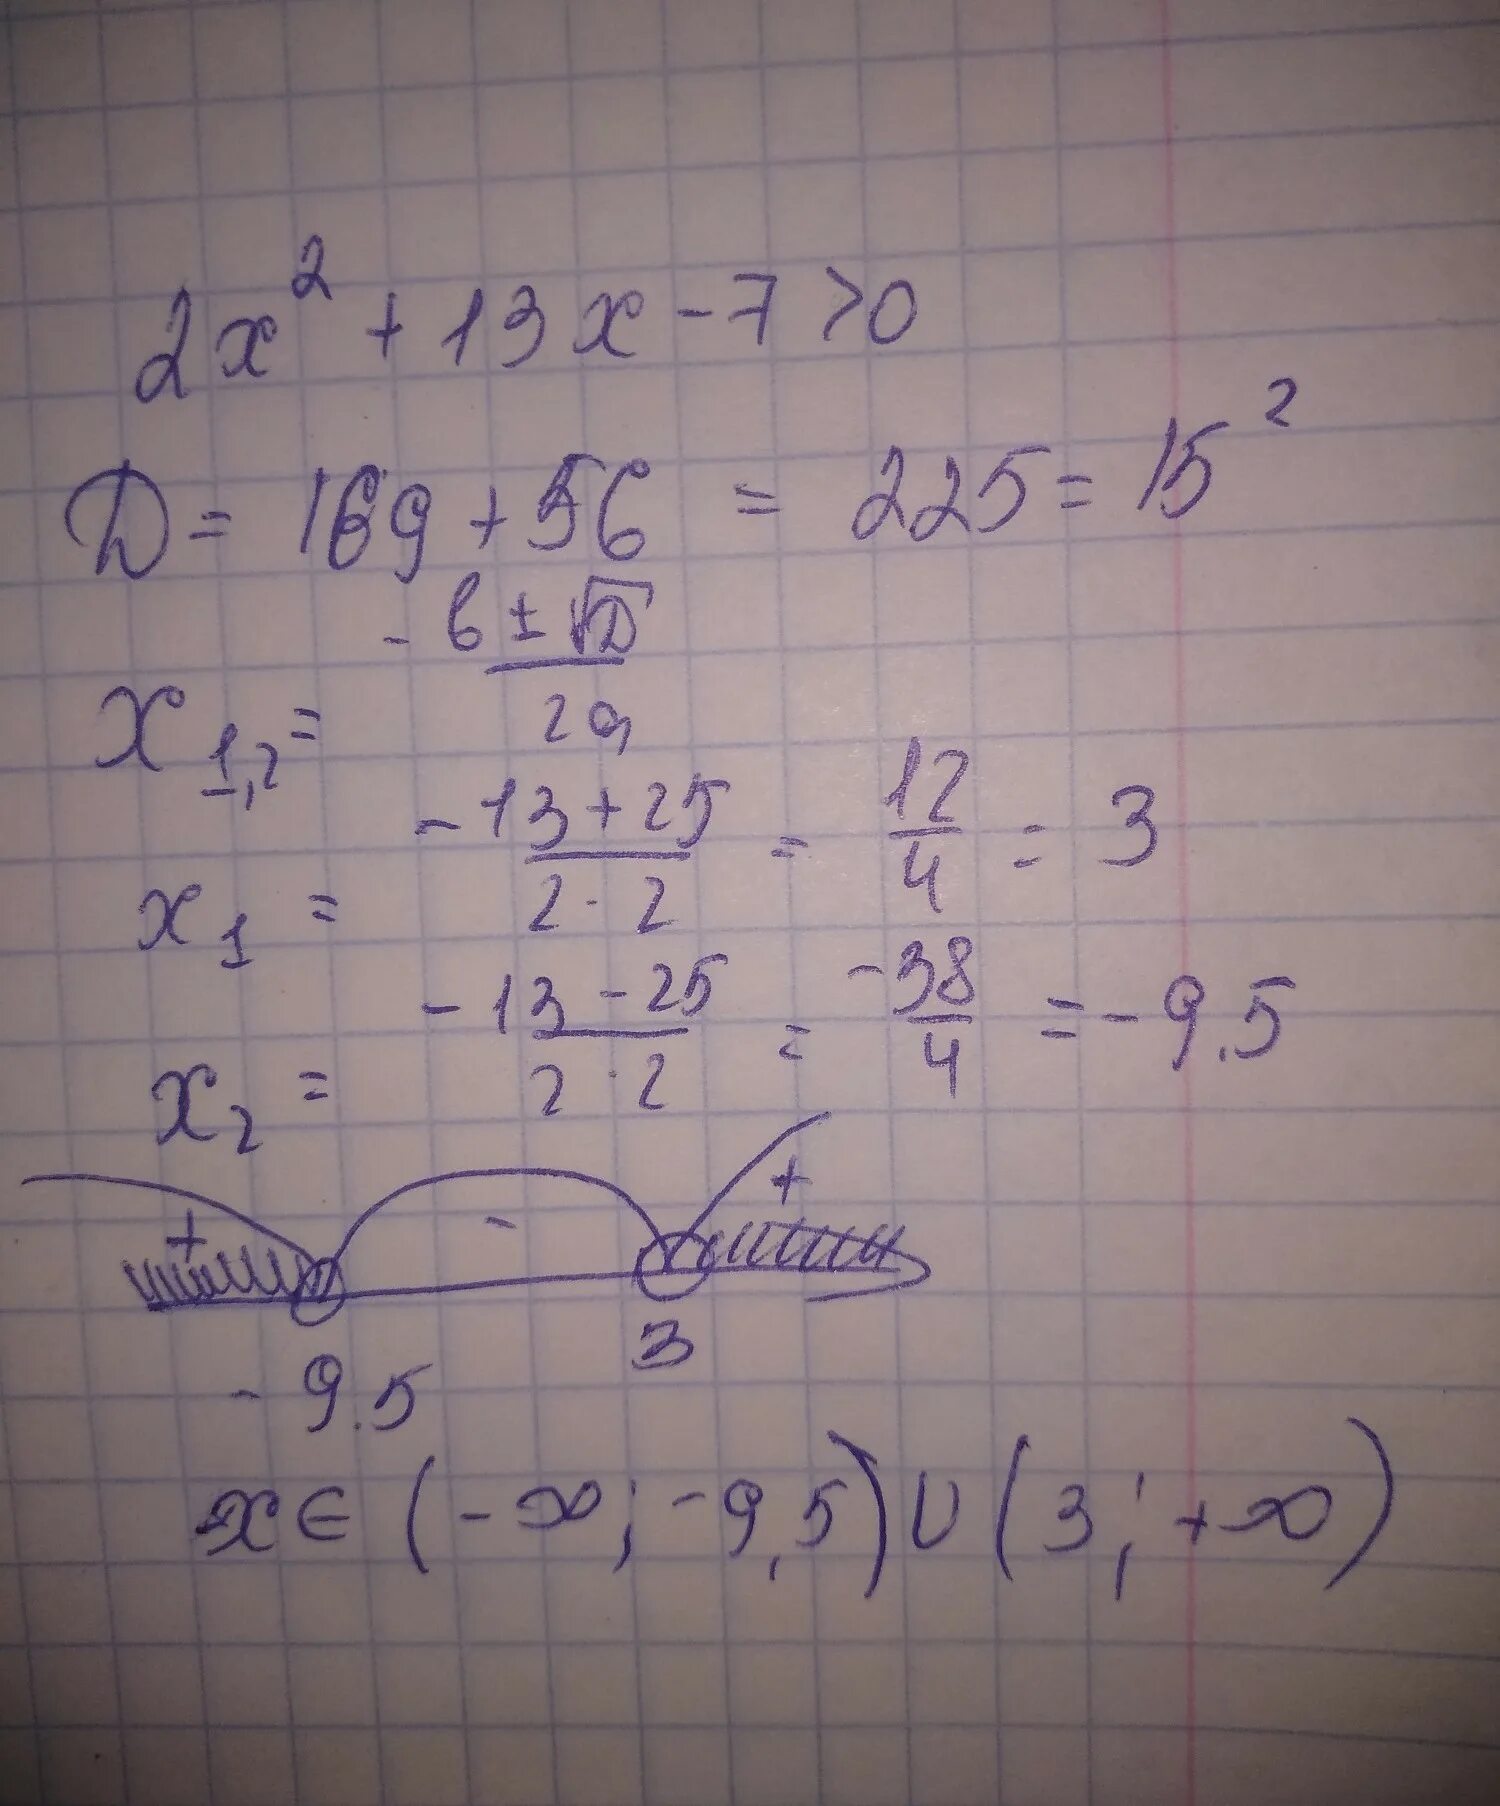 2x² + 13x - 7 > 0
D = 169 + 56 = 225 = 15²
x₁,₂ = (-b ± √D) / 2a
x₁ = (-13 + 25) / (2 · 2) = 12/4 = 3
x₂ = (-13 - 25) / (2 · 2) = -38/4 = -9.5
+ - +
-9.5 3
x ∈ (-∞; -9,5) ∪ (3; +∞)